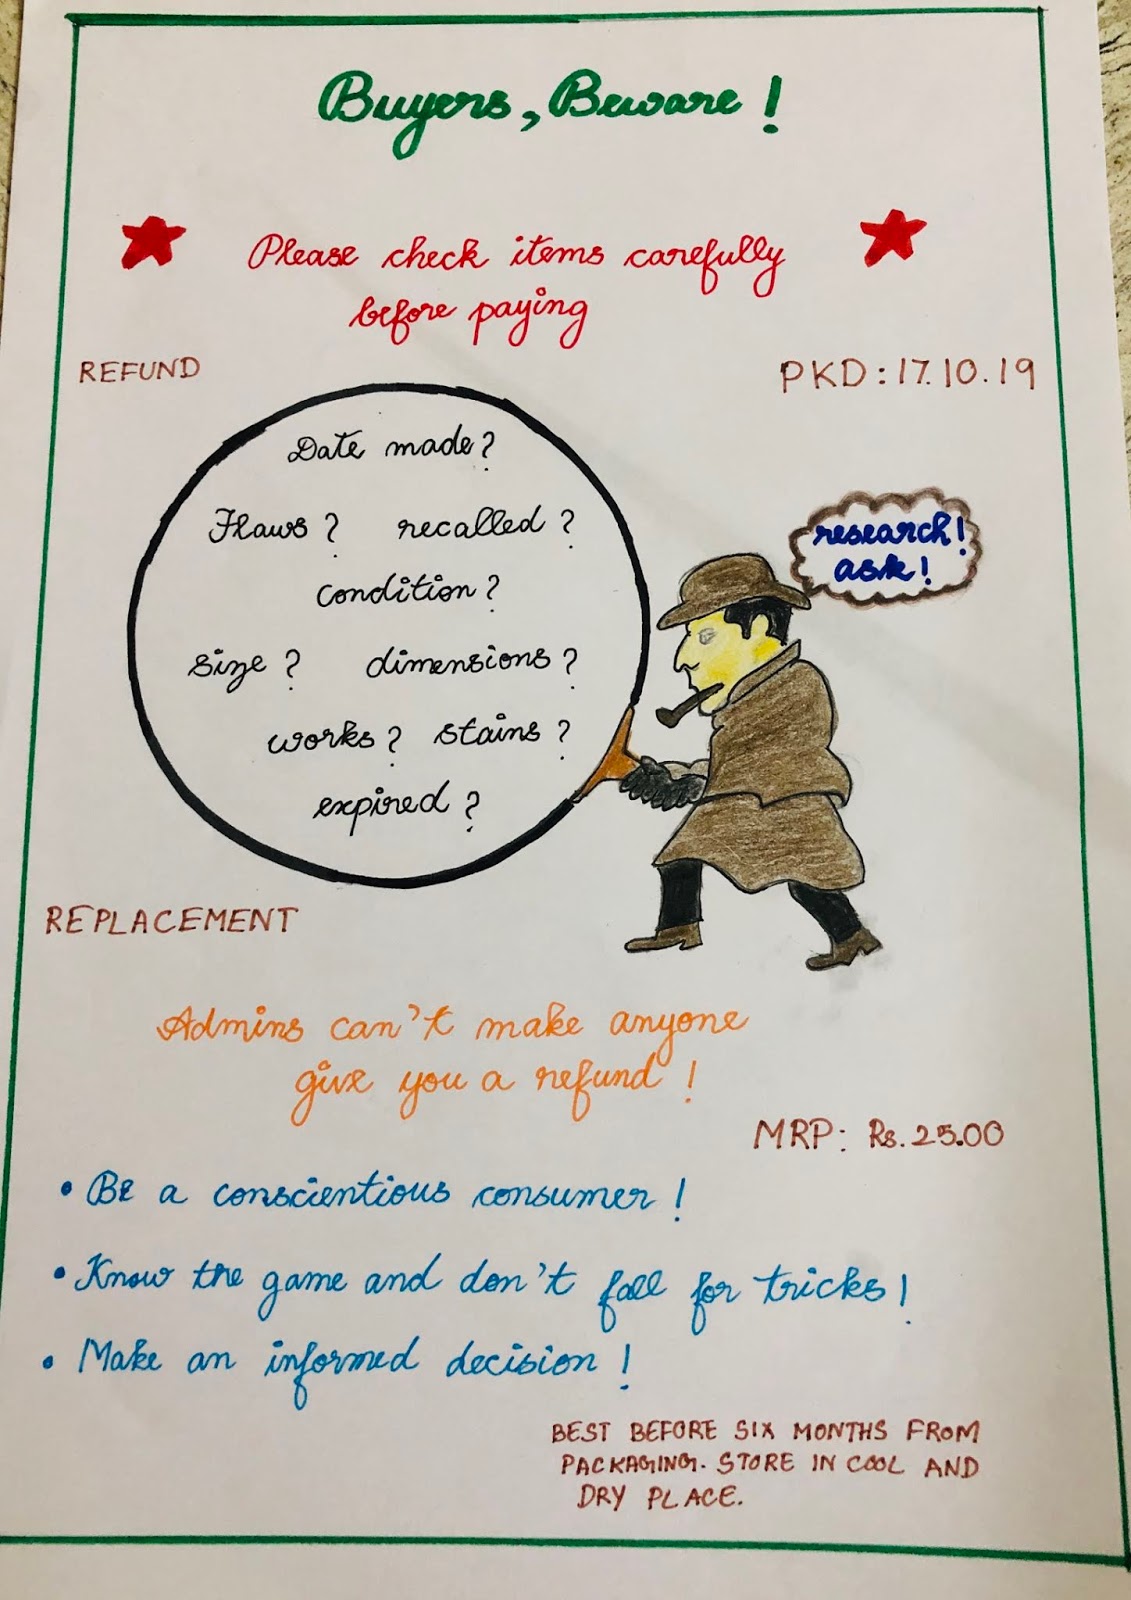 Buyers, Beware!
Please check items carefully
before paying
REFUND
PKD: 17.10.19
Date made?
Flaws? recalled?
condition?
size? dimensions?
works? stains?
expired?
research!
ask!
REPLACEMENT
Admins can't make anyone
give you a refund!
MRP: Rs. 25.00
• Be a conscientious consumer!
• Know the game and don't fall for tricks!
• Make an informed decision!
BEST BEFORE SIX MONTHS FROM
PACKAGING. STORE IN COOL AND
DRY PLACE.